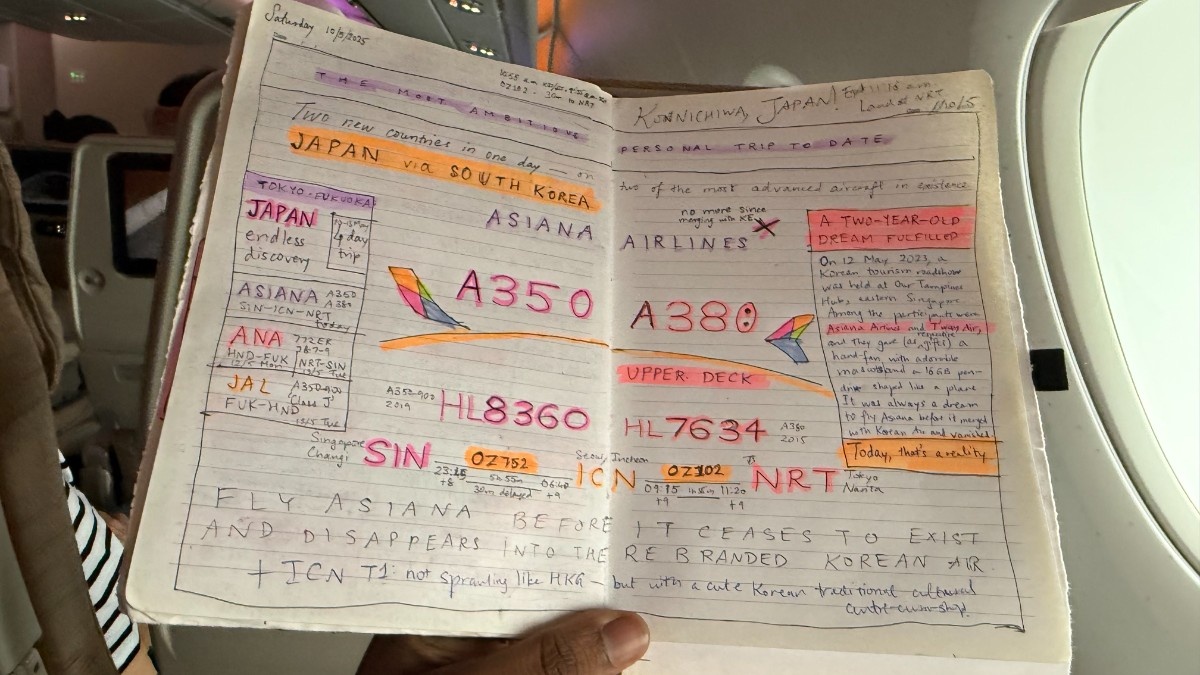 Saturday 10/5/2025
10:55 a.m.
OZ102 - 30m to NRT
THE MOST AMBITIOUS
Two new countries in one day — on
JAPAN via SOUTH KOREA
TOKYO-FUKUOKA
JAPAN
endless
discovery
4 day
trip
ASIANA A350
A380
SIN-ICN-NRT
today
ANA 772ER
787-9
HND-FUK NRT-SIN
12/5 Mon 13/5 Tue
JAL A350-900
'Class J'
FUK-HND
13/5 Tue
ASIANA
A350
A350-900
2019
HL8360
Singapore
Changi
SIN
OZ752
23:15
+8
5h 55m
30m delayed
06:40
+9
KONNICHIWA, JAPAN!
11:16 a.m.
Land at NRT
11/10/5
PERSONAL TRIP TO DATE
two of the most advanced aircraft in existence
no more since
merging with KE
AIRLINES
A380
UPPER DECK
HL7634
A380
2015
Seoul, Incheon
ICN
OZ102
09:15
+9
11:20
+9
T1
NRT
Tokyo
Narita
A TWO-YEAR-OLD
DREAM FULFILLED
On 12 May 2023, a
Korean tourism roadshow
was held at Our Tampines
Hub, eastern Singapore.
Among the participants were
Asiana Airlines and T'way Air,
and they gave (as respective gifts) a
hand-fan with adorable
mascots and a 16GB pen-
drive shaped like a plane
It was always a dream
to fly Asiana before it merged
with Korean Air and vanished
Today, that's a reality
FLY ASIANA BEFORE IT CEASES TO EXIST
AND DISAPPEARS INTO THE REBRANDED KOREAN AIR.
+ ICN T1: not sprawling like HKG — but with a cute Korean traditional cultural
centre-cum-shop.